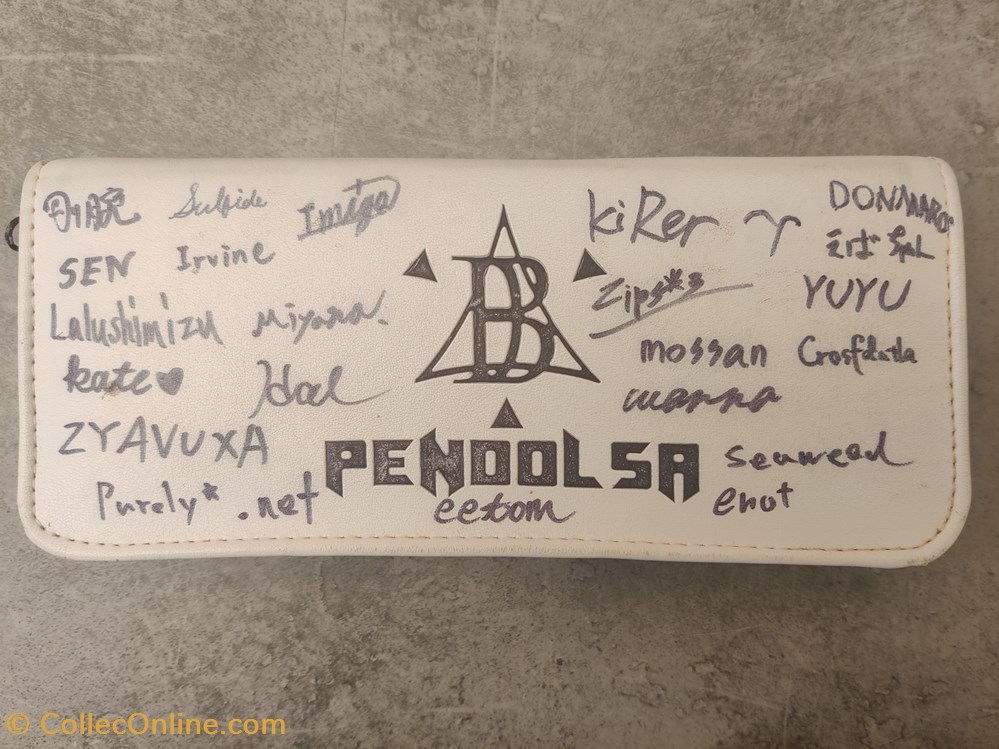 剛腕
Sulfide
Imiga
SEN
Irvine
Lalushimizu
Miyama.
kate♥
Idol
ZYAVUXA
Purely*
.net
B
PENDOLSA
eetom
KiRer
DONMARO
えば
Zips*s
YUYU
mossan
wanna
seaweed
enut
© CollecOnline.com